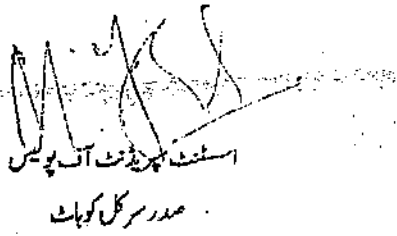 اسسٹنٹ سپریڈنٹ آف پولیس
صدر سرکل کوہاٹ